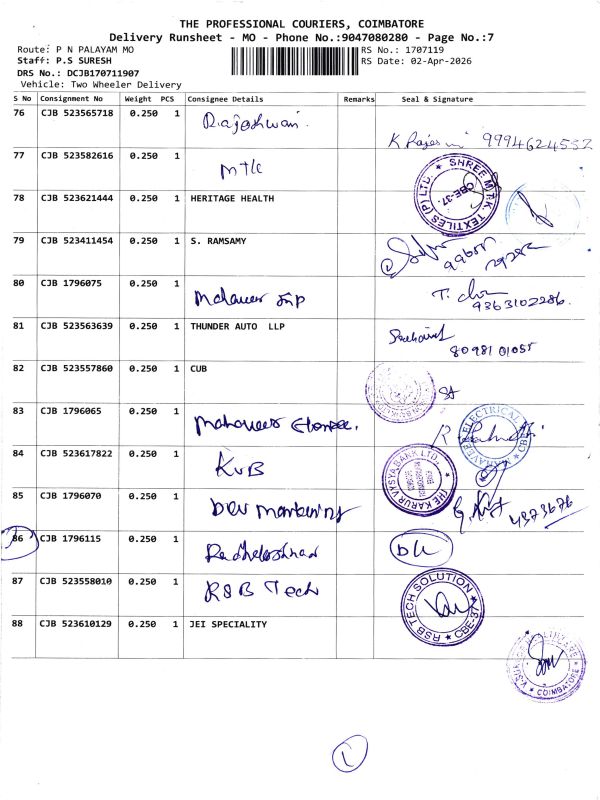 THE PROFESSIONAL COURIERS, COIMBATORE
Delivery Runsheet - MO - Phone No.:9047080280 - Page No.:7
Route: P N PALAYAM MO
RS No.: 1707119
Staff: P.S SURESH
RS Date: 02-Apr-2026
DRS No.: DCJB170711907
Vehicle: Two Wheeler Delivery
S No Consignment No Weight PCS Consignee Details Remarks Seal & Signature
76 CJB 523565718 0.250 1 Rajeshwari.
9994624552
77 CJB 523582616 0.250 1 MTC
SHREE MTK. TEXTILES (P) LTD. CBE-37.
78 CJB 523621444 0.250 1 HERITAGE HEALTH
79 CJB 523411454 0.250 1 S. RAMSAMY
80 CJB 1796075 0.250 1 Mahaveer
9363102286.
81 CJB 523563639 0.250 1 THUNDER AUTO LLP
80981 01055
82 CJB 523557860 0.250 1 CUB
83 CJB 1796065 0.250 1 Mahaveer
ELECTRICAL
84 CJB 523617822 0.250 1 KVB
THE KARUR VYSYA BANK LTD.,
85 CJB 1796070 0.250 1 Dev Marketing
86 CJB 1796115 0.250 1
87 CJB 523558010 0.250 1 RSB Tech
RSB TECH SOLUTION
88 CJB 523610129 0.250 1 JEI SPECIALITY
COIMBATORE